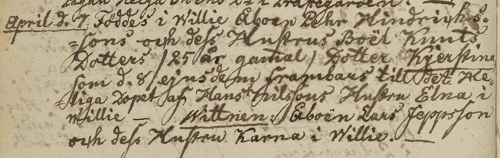 April d. 7. föddes i Willie Åboen Pehr Hindrichs-
=sons och dess Hustrus Boël Knuts
Dotters /25 år gamal/ Dotter Kjerstina
som d. 8 ejusdem frambars till det He-
liga Dopet af Hans Nilssons Hustru Elna i
Willie — Wittnen: Åboen Lars Jeppsson
och dess Hustru Karna i Willie. —